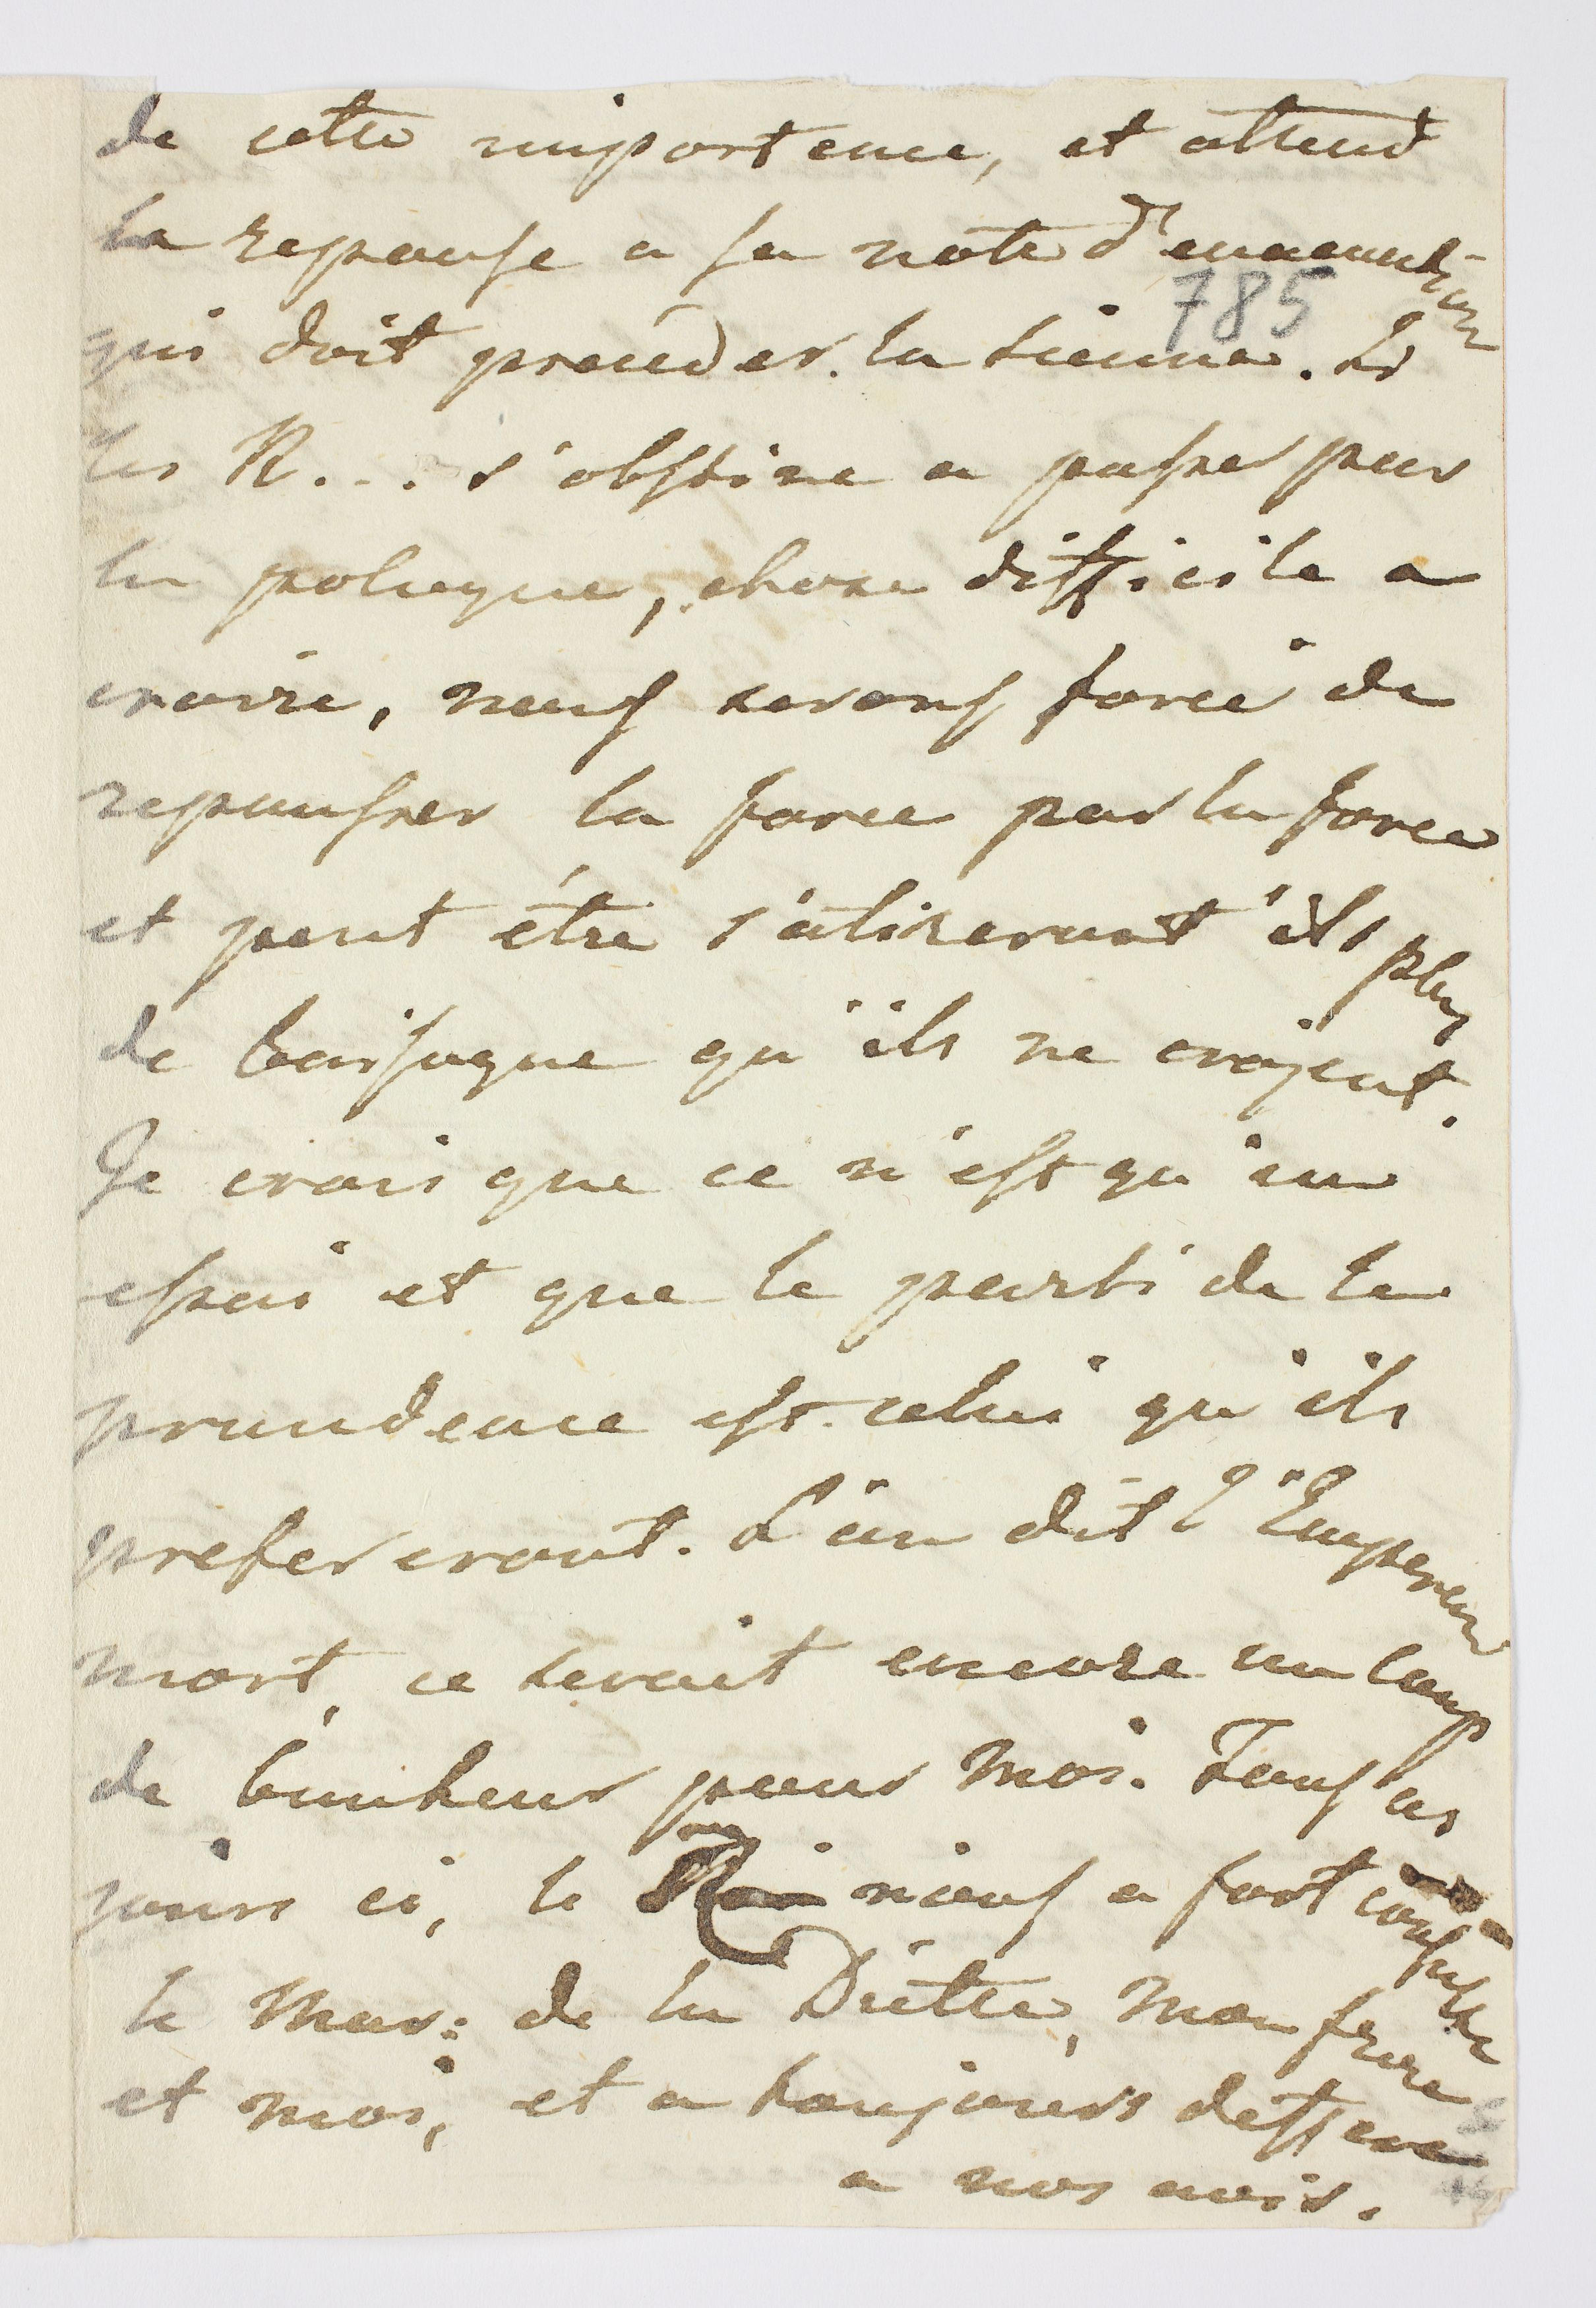 de cette importence, et attend
la reponse a sa note d'enonciation
785
qui doit preceder la sienne. Si
les R... s'obstine a passer par
la pologne, chose difficile a
croire, nous serons forcé de
repousser la force par la force
et peut être s'atirerunt ils plus
de baisogne qu'ils ne crojent.
Je crois que ce n'est qu'un
essai et que le parti de la
prundence est celui qu'ils
prefereront. L'on dit l'Empereur
mort, ce serait encore un coup
de bunheur pour moi. Tous ces
jours ci, le Roi nous a fort consulté
le Mar: de la Diette, mon frere
et moi, et a toujours defferé
a nos avis.